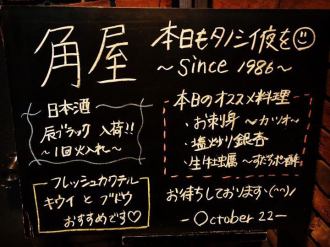 角屋
本日もタノシイ夜を☺
～Since 1986～
日本酒
辰ブラック 入荷!!
～1回火入れ～
フレッシュカクテル
キウイ と ブドウ
おすすめです♡
本日のオススメ料理
・お刺身 ～カツオ～
・塩炒り銀杏
・生牡蠣 ～すだちポン酢～
お待ちしております＼(^^)/
－October 22－